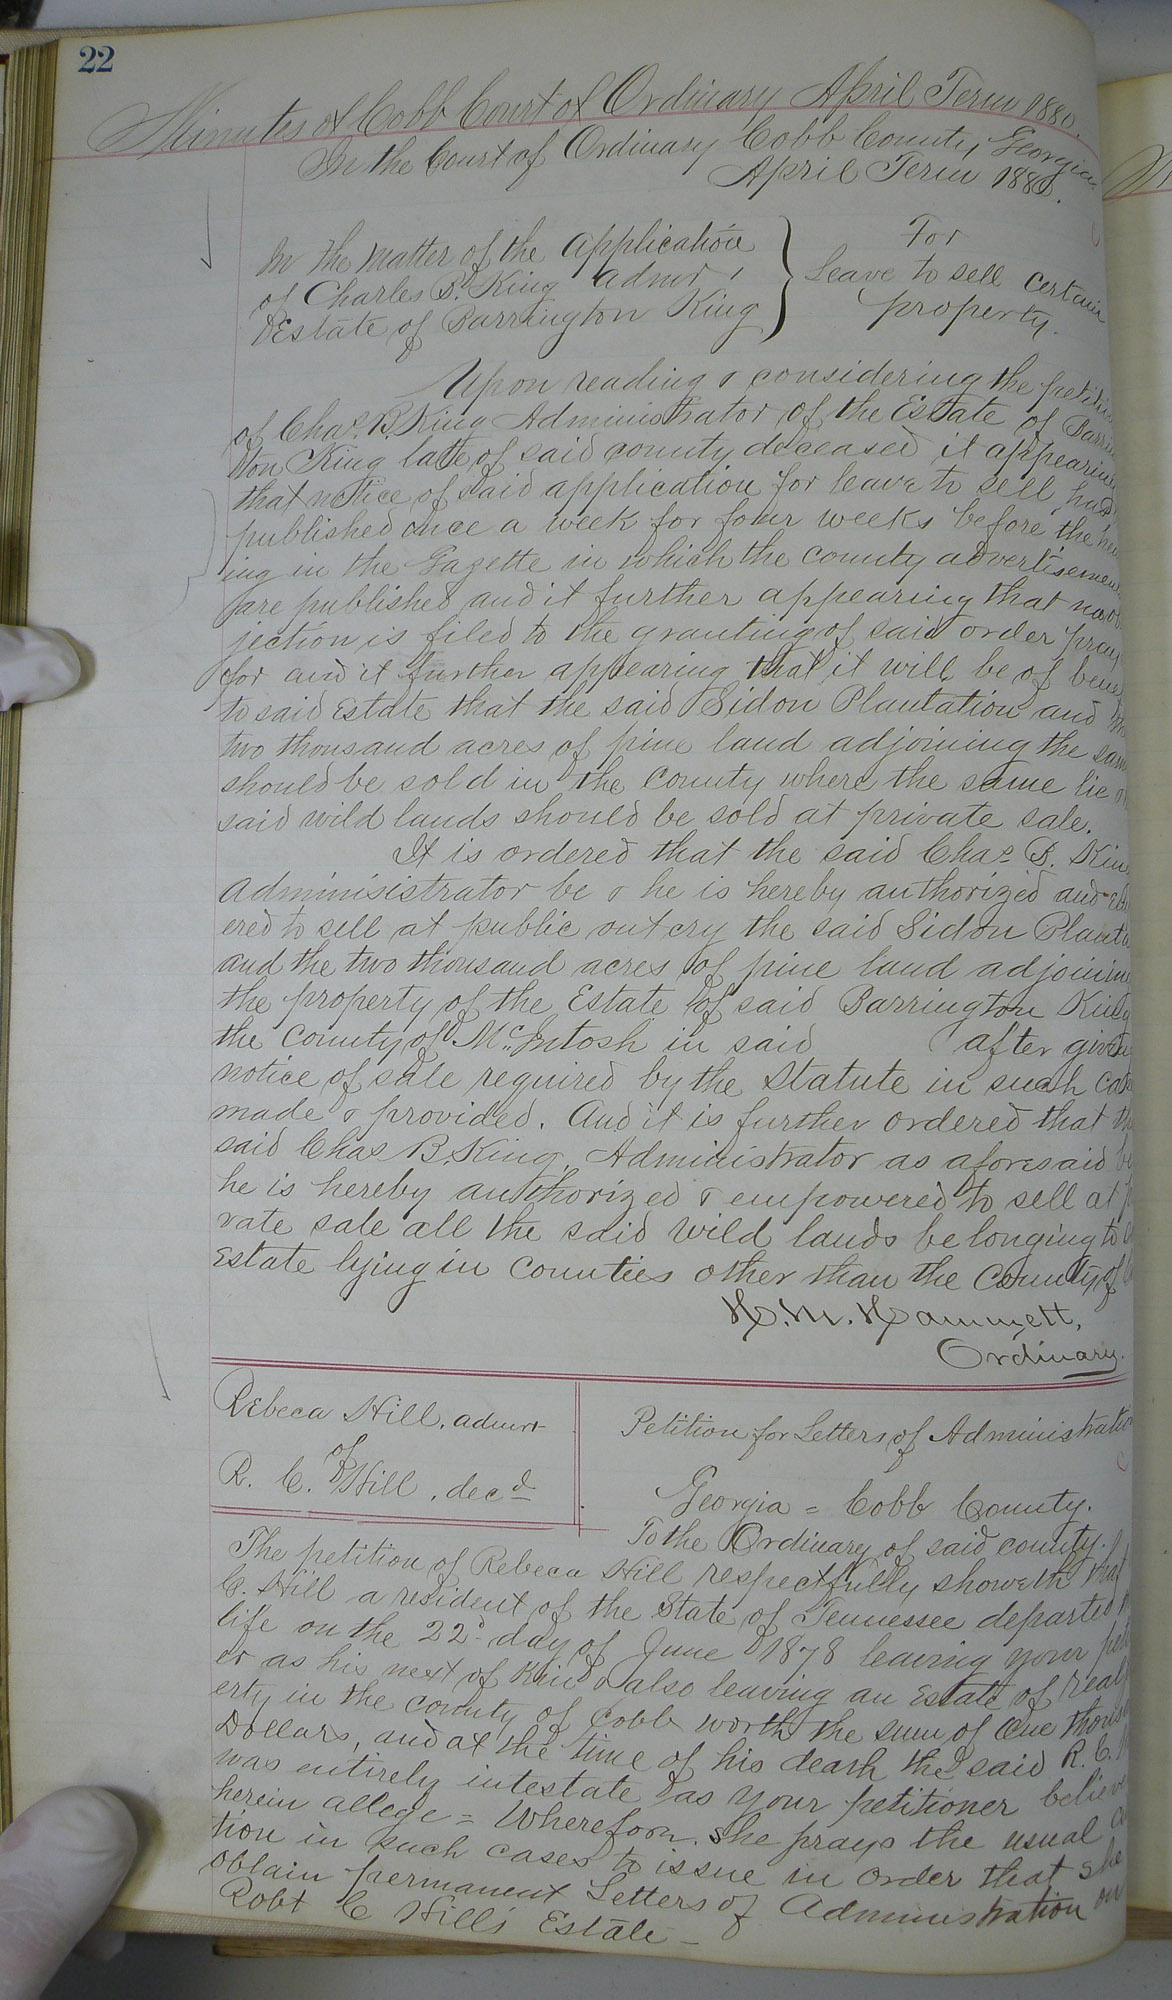 22
Minutes of Cobb Court of Ordinary April Term 1880.
In the Court of Ordinary Cobb County, Georgia
April Term 1880.
In the matter of the application
of Charles B. King admr
Estate of Barrington King
For
Leave to sell certain
property.
Upon reading & considering the petition
of Chas. B. King Administrator of the Estate of Barring
ton King late of said county deceased it appearing
that notice of said application for leave to sell had
published once a week for four weeks before the hea
ing in the Gazette in which the county advertisemen
are published and it further appearing that no ob
jection is filed to the granting of said order pray
for and it further appearing that it will be of bene
to said Estate that the said Sidon Plantation and
two thousand acres of pine land adjoining the same
should be sold in the county where the same lie
said wild lands should be sold at private sale.
It is ordered that the said Chas. B. King
Adminisistrator be & he is hereby authorized and
ered to sell at public outcry the said Sidon Planta
and the two thousand acres of pine land adjoining
the property of the Estate of said Barrington King
the County of McIntosh in said after giving
notice of sale required by the Statute in such case
made & provided. And it is further ordered that the
said Chas B. King, Administrator as aforesaid be
he is hereby authorized & empowered to sell at p
vate sale all the said wild lands belonging to
Estate lying in counties other than the County of
H. M. Hammett,
Ordinary.
Rebeca Hill, admrx
of
R. C. Hill, decd
Petition for Letters of Administratio
Georgia = Cobb County.
To the Ordinary of said county.
The petition of Rebeca Hill respectfully showeth that
C. Hill a resident of the State of Tennessee departed
life on the 22d day of June 1878 leaving your peti
er as his next of kin & also leaving an Estate of real
erty in the county of Cobb worth the sum of One thous
Dollars, and at the time of his death the said R. C.
was entirely intestate as your petitioner believe
herein allege = Wherefore she prays the usual
tion in such cases to issue in order that she
oblain permanent Letters of Administration on
Robt C Hill's Estate -